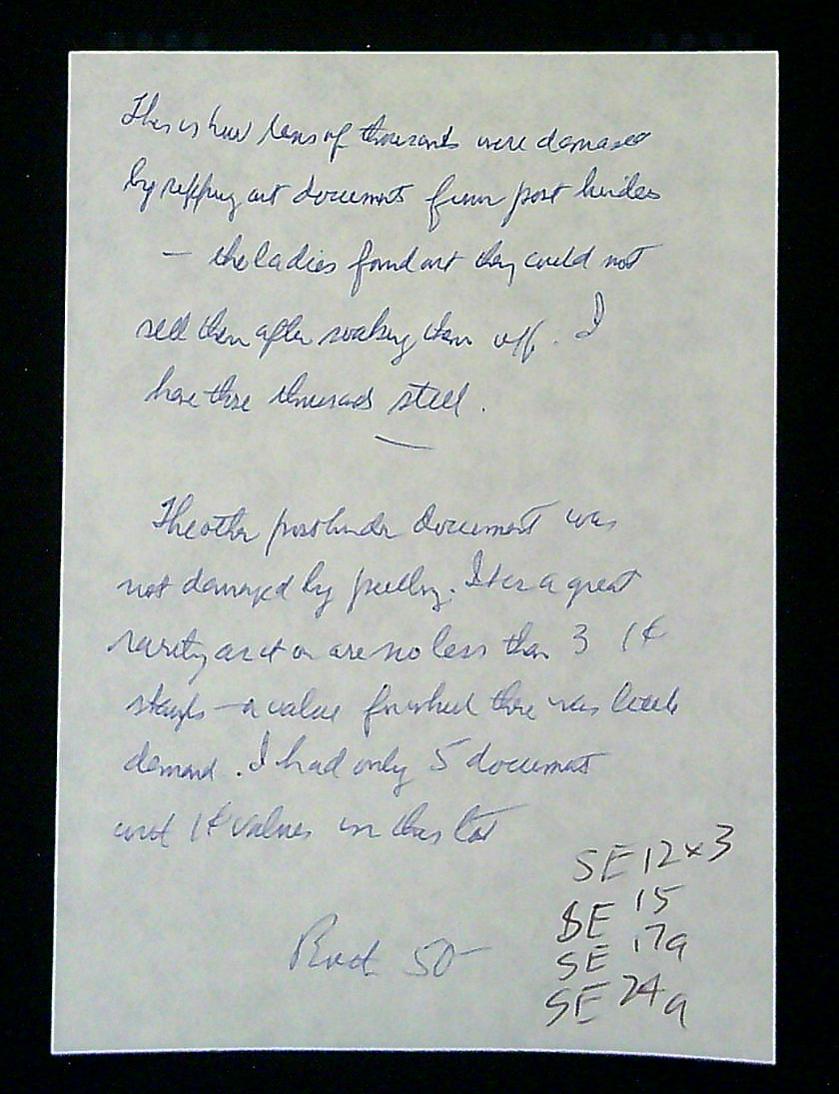 This is how tens of thousands were damaged
by ripping out documents from post binders
— the ladies found out they could not
sell them after soaking them off. I
have three thousands still.
The other post binder document was
not damaged by pulling. It is a great
rarity as it on are no less than 3 1¢
stamps — a value for which there was little
demand. I had only 5 documents
with 1¢ values in this lot
50-
SE 12x3
SE 15
SE 17a
SE 24a